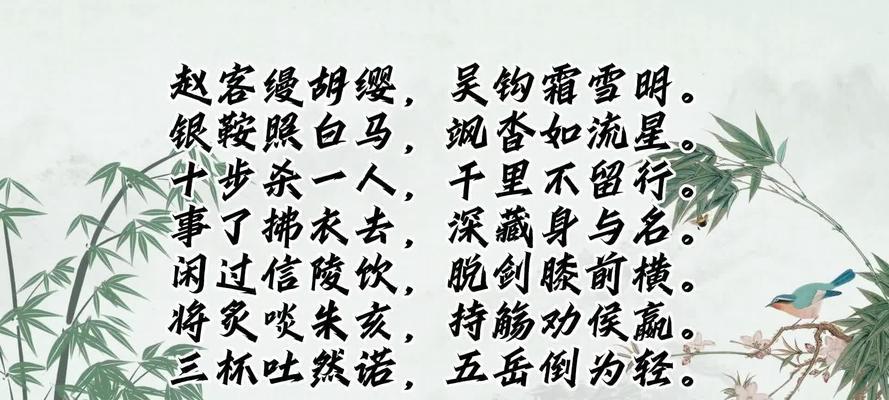 赵客缦胡缨，吴钩霜雪明。
银鞍照白马，飒沓如流星。
十步杀一人，千里不留行。
事了拂衣去，深藏身与名。
闲过信陵饮，脱剑膝前横。
将炙啖朱亥，持觞劝侯嬴。
三杯吐然诺，五岳倒为轻。